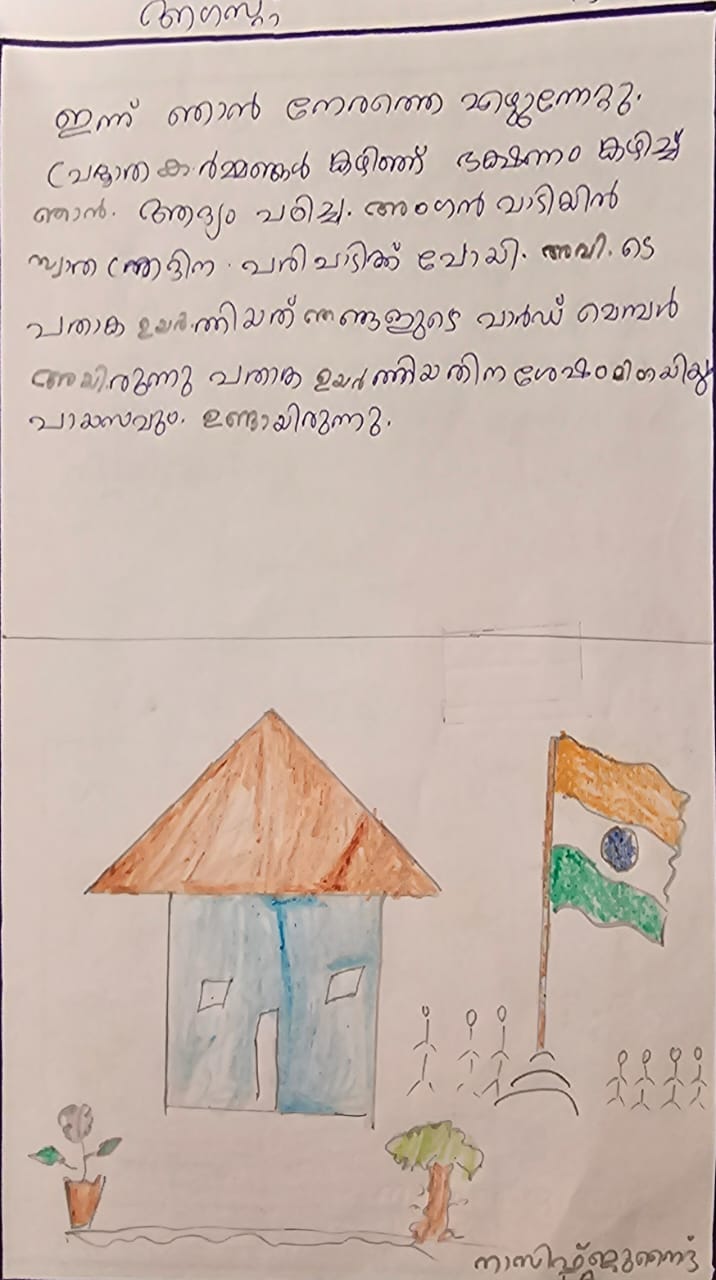 ആഗസ്റ്റ്
ഇന്ന് ഞാൻ നേരത്തെ എഴുന്നേറ്റു.
പ്രഭാത കർമ്മങ്ങൾ കഴിഞ്ഞ് ഭക്ഷണം കഴിച്ച്
ഞാൻ. ആദ്യം പഠിച്ചു. അംഗൻ വാടിയിൽ
സ്വാതന്ത്ര്യദിന പരിപാടിക്ക് പോയി. അവിടെ
പതാക ഉയർത്തിയത് ഞങ്ങളുടെ വാർഡ് മെമ്പർ
അയിരുന്നു പതാക ഉയർത്തിയതിന ശേഷം മിഠായിയും
പായസവും. ഉണ്ടായിരുന്നു.